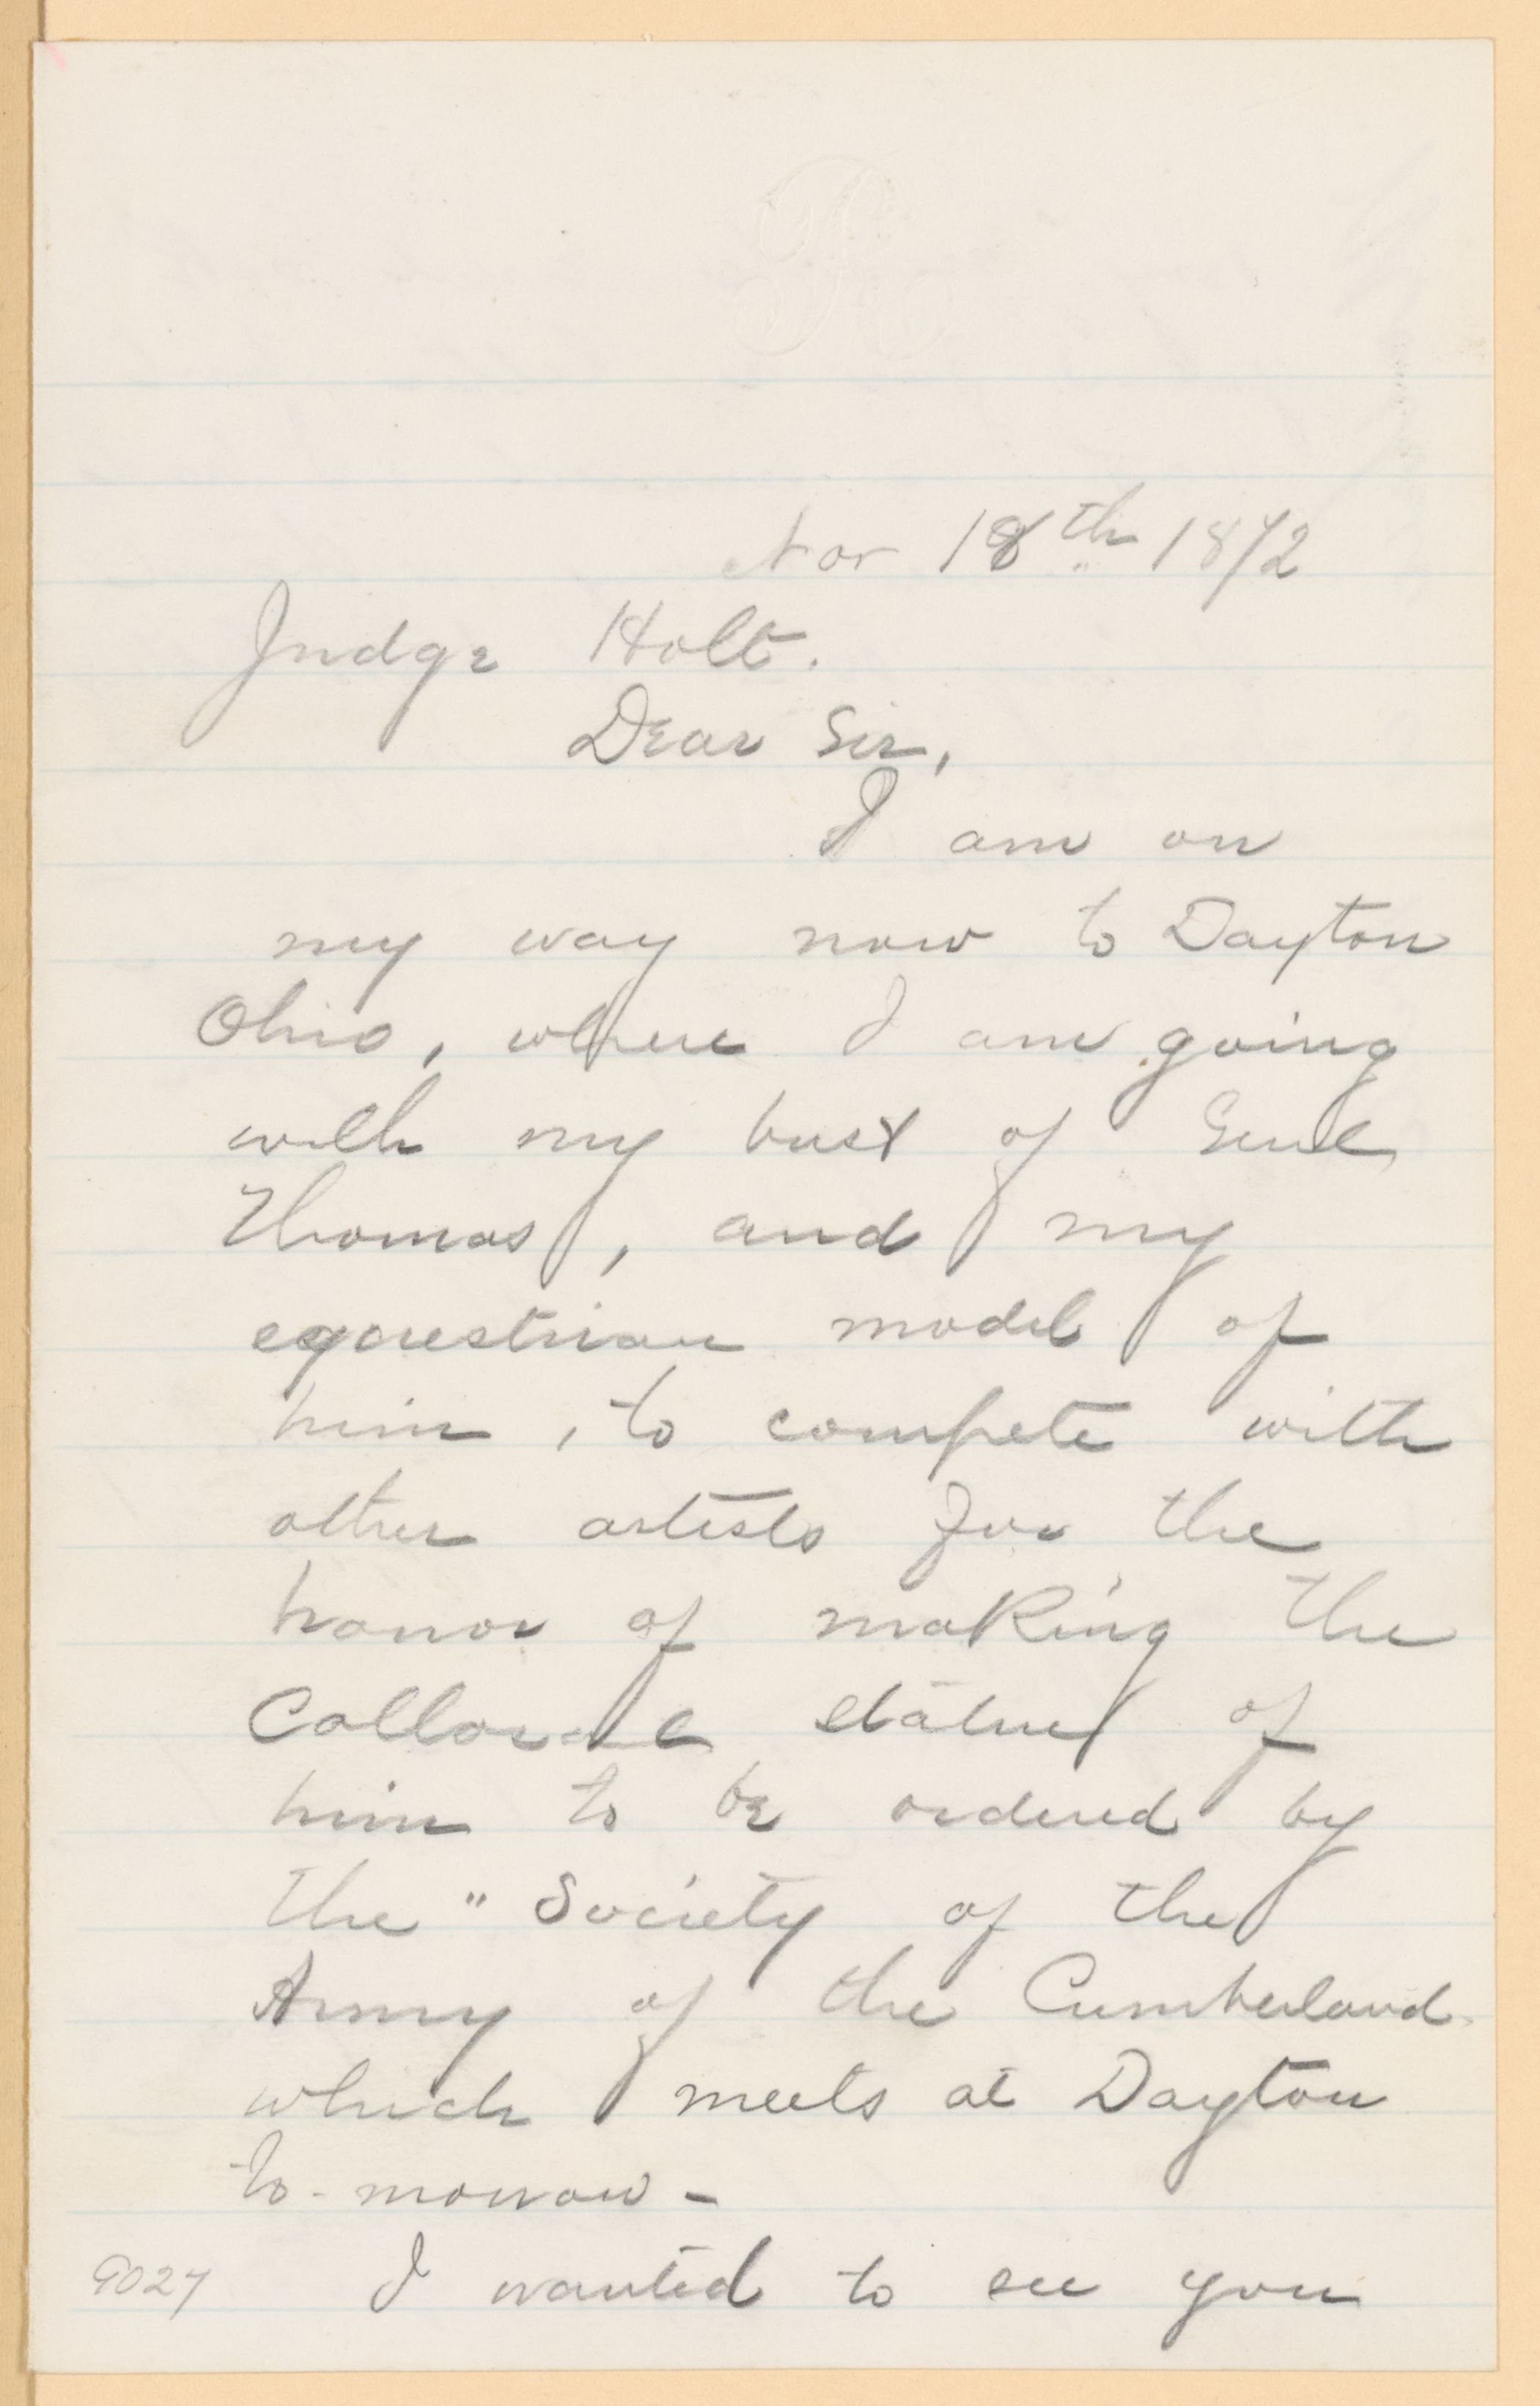 Nov 18th 1872
Judge Holt.
Dear Sir,
I am on
my way now to Dayton
Ohio, where I am going
with my bust of Genl
Thomas, and my
equestrian model of
him, to compete with
other artists for the
honor of making the
Collosal statue of
him to be ordered by
the " Society of the
Army of the Cumberland
which meets at Dayton
to-morrow -
I wanted to see you
9027